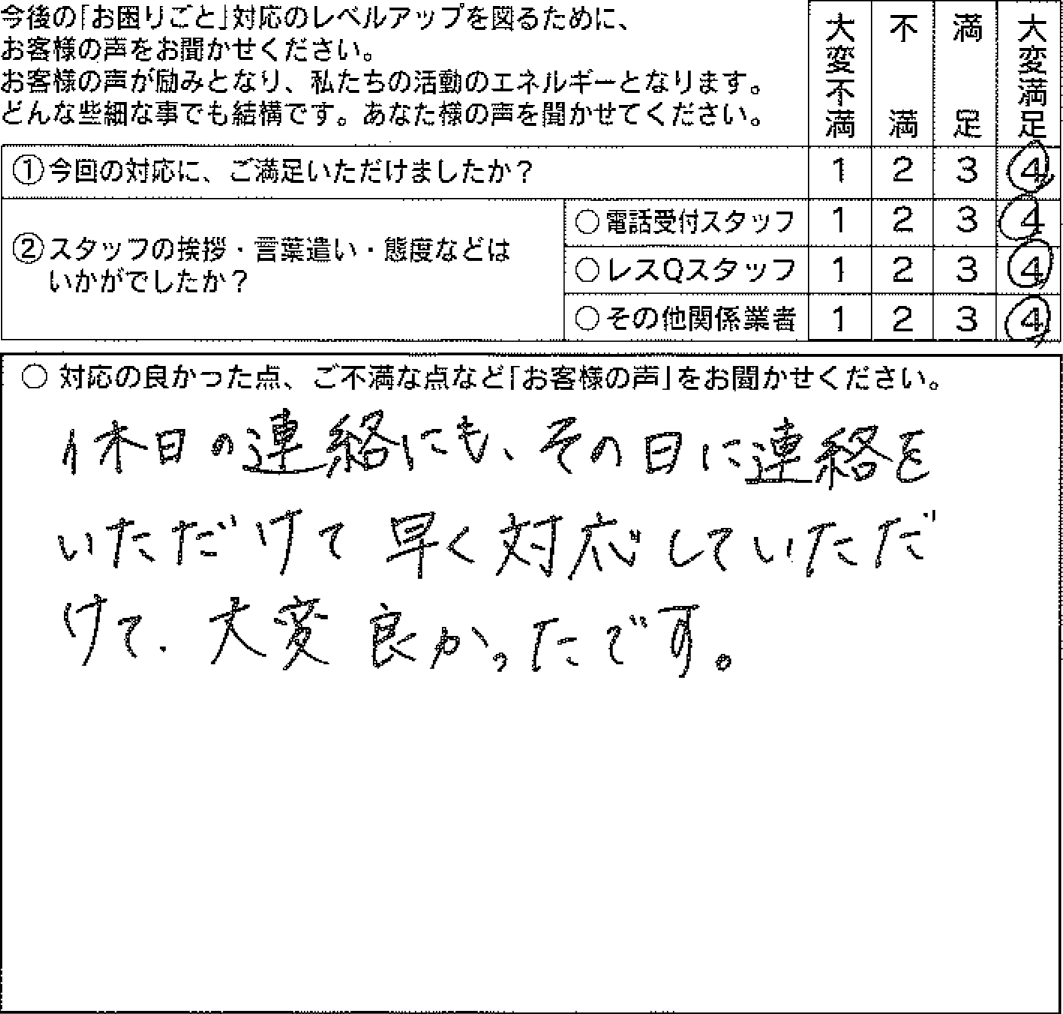 今後の「お困りごと」対応のレベルアップを図るために、
お客様の声をお聞かせください。
お客様の声が励みとなり、私たちの活動のエネルギーとなります。
どんな些細な事でも結構です。あなた様の声を聞かせてください。
大変不満 不満 満足 大変満足
①今回の対応に、ご満足いただけましたか？ 1 2 3 4
②スタッフの挨拶・言葉遣い・態度などは
いかがでしたか？
○電話受付スタッフ 1 2 3 4
○レスQスタッフ 1 2 3 4
○その他関係業者 1 2 3 4
○ 対応の良かった点、ご不満な点など「お客様の声」をお聞かせください。
休日の連絡にも、その日に連絡を
いただけて早く対応していただ
けて、大変良かったです。